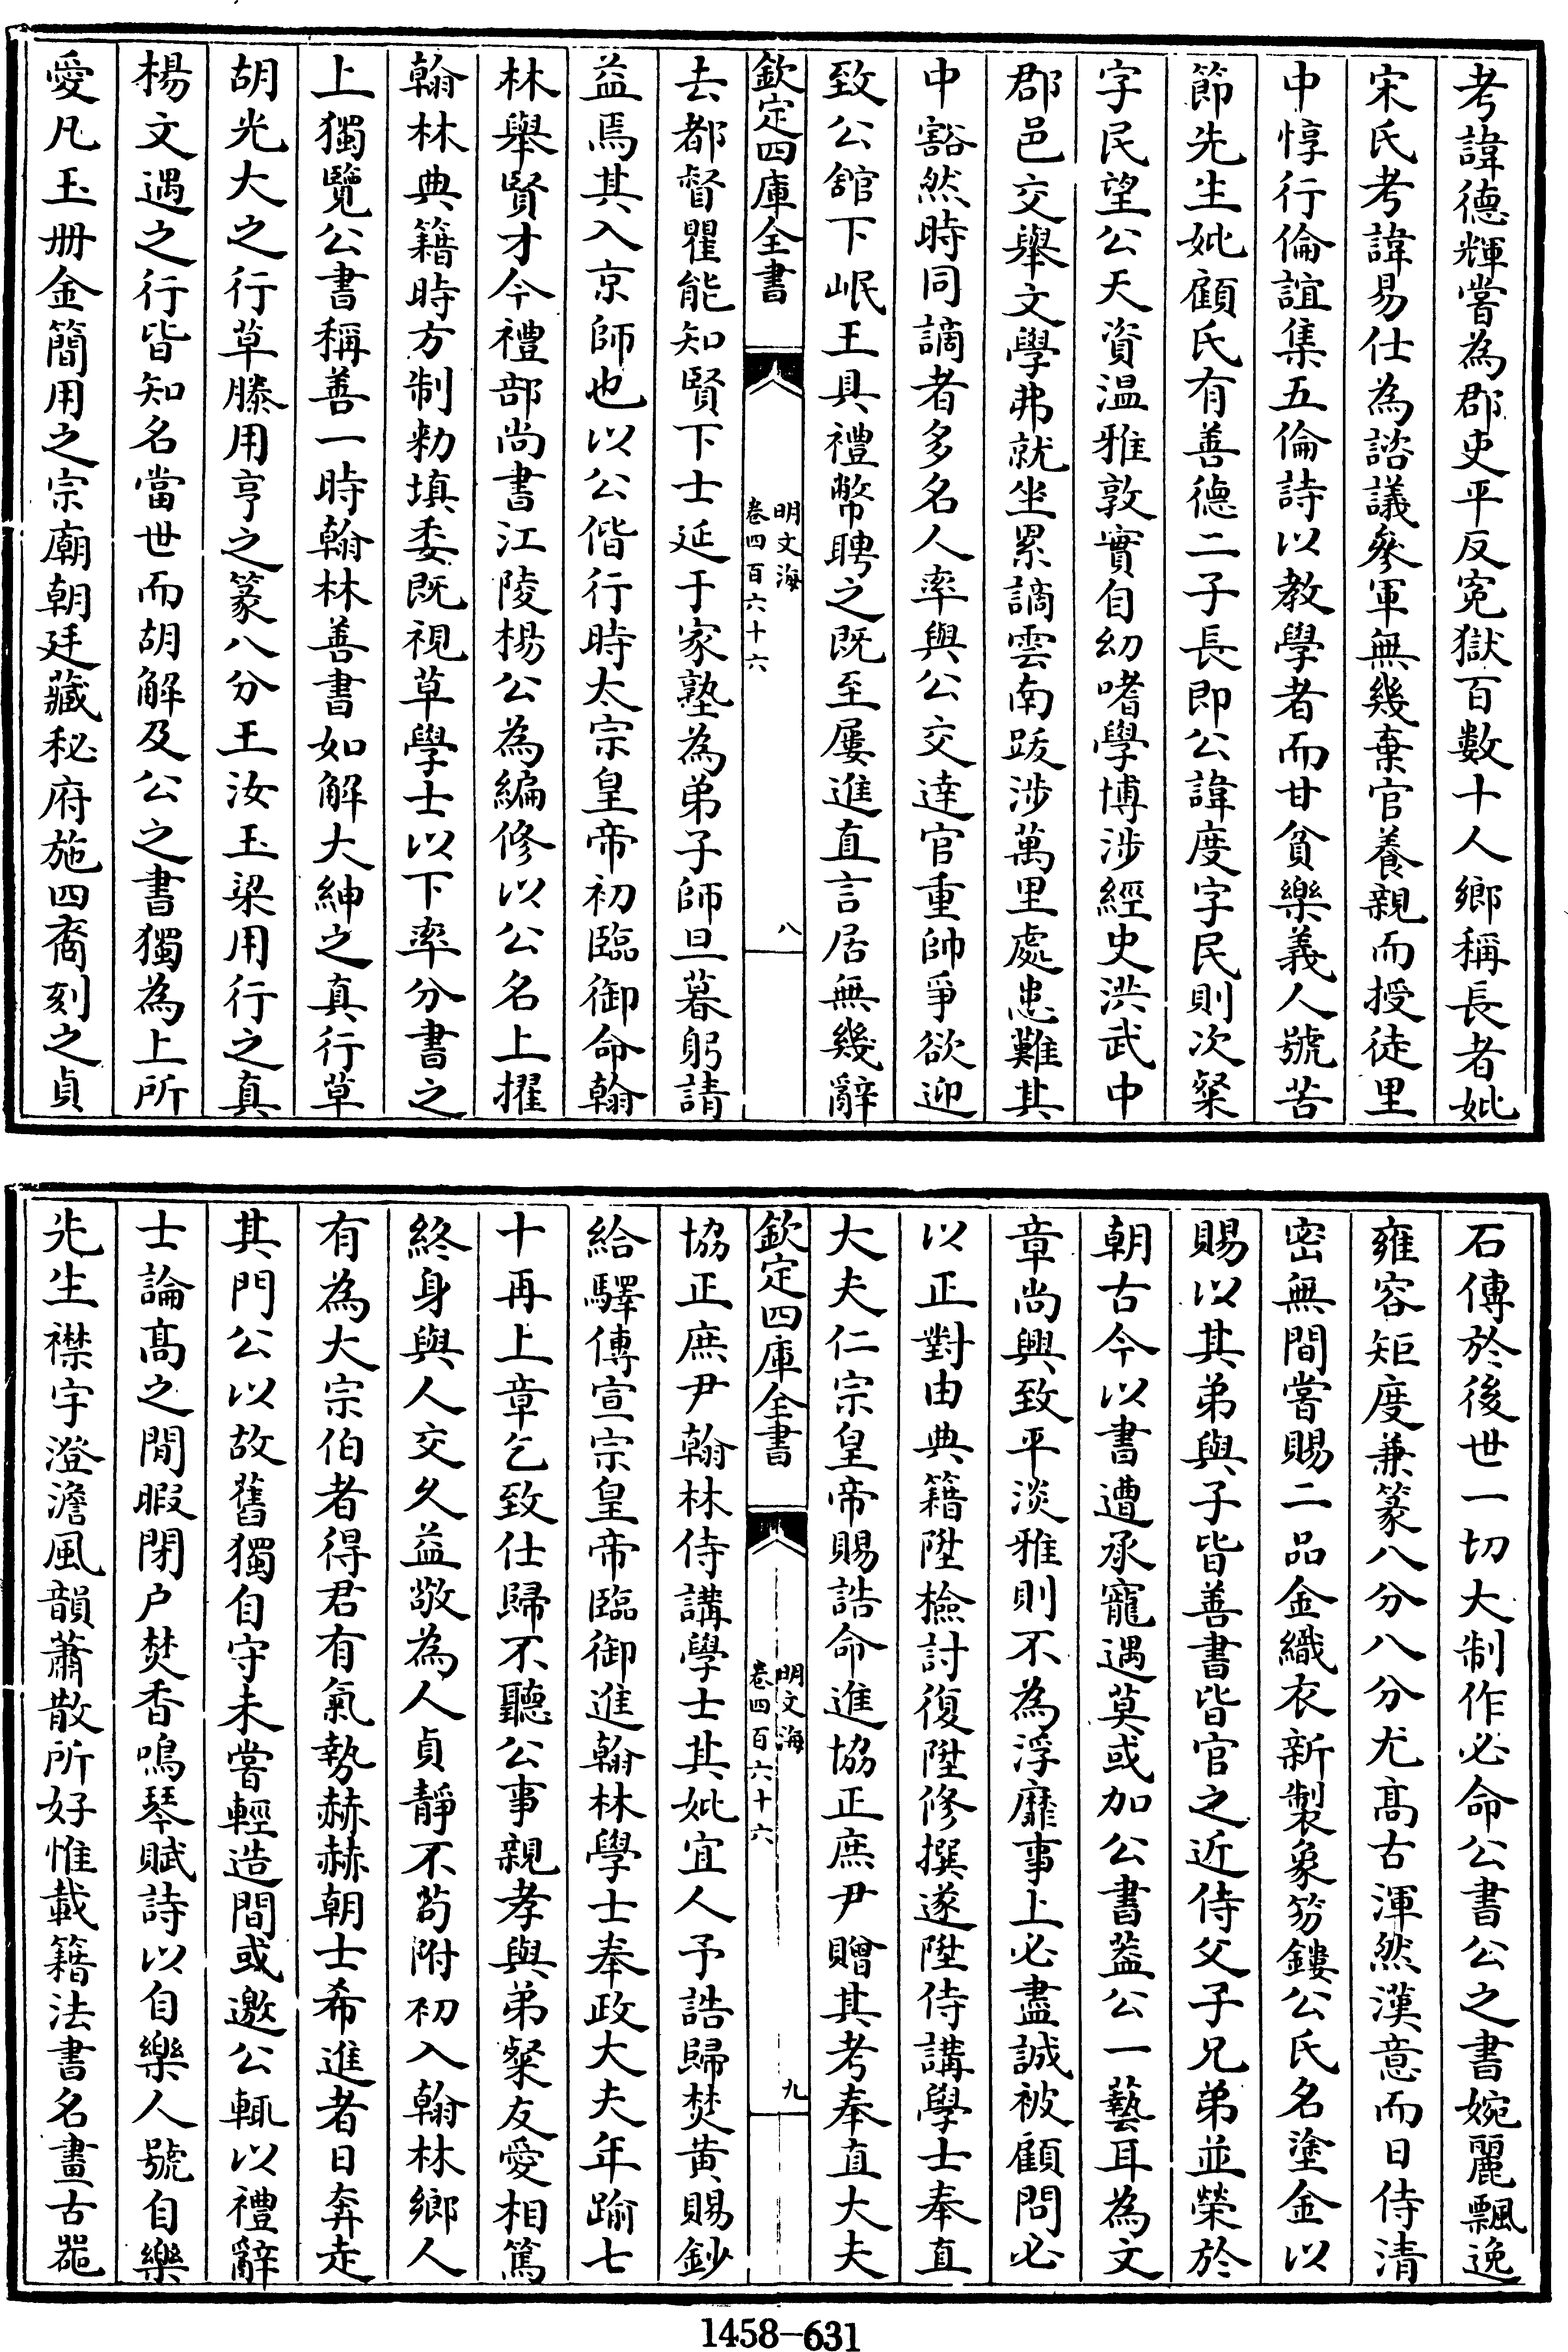 考諱德輝嘗為郡吏平反寃獄百數十人鄉稱長者妣
宋氏考諱易仕為諮議參軍無幾棄官養親而授徒里
中惇行倫誼集五倫詩以教學者而甘貧樂義人號苦
節先生妣顧氏有善德二子長即公諱度字民則次粲
字民望公天資温雅敦實自幼嗜學博涉經史洪武中
郡邑交舉文學弗就坐累謫雲南跋涉萬里處患難其
中豁然時同謫者多名人率與公交達官重帥爭欲迎
致公舘下岷王具禮幣聘之既至屢進直言居無幾辭
欽定四庫全書
明文海
卷四百六十六
八
去都督瞿能知賢下士延于家塾為弟子師旦暮躬請
益焉其入京師也以公偕行時太宗皇帝初臨御命翰
林舉賢才今禮部尚書江陵楊公為編修以公名上擢
翰林典籍時方制勑填委既視草學士以下率分書之
上獨覽公書稱善一時翰林善書如解大紳之真行草
胡光大之行草滕用亨之篆八分王汝玉梁用行之真
楊文遇之行皆知名當世而胡解及公之書獨為上所
愛凡玉册金簡用之宗廟朝廷藏秘府施四裔刻之貞
石傳於後世一切大制作必命公書公之書婉麗飄逸
雍容矩度兼篆八分八分尤髙古渾然漢意而日侍清
密無間嘗賜二品金織衣新製象笏鏤公氏名塗金以
賜以其弟與子皆善書皆官之近侍父子兄弟並榮於
朝古今以書遭承寵遇莫或加公書葢公一藝耳為文
章尚興致平淡雅則不為浮靡事上必盡誠被顧問必
以正對由典籍陞檢討復陞修撰遂陞侍講學士奉直
大夫仁宗皇帝賜誥命進協正庶尹贈其考奉直大夫
欽定四庫全書
明文海
卷四百六十六
九
協正庶尹翰林侍講學士其妣宜人予誥歸焚黄賜鈔
給驛傳宣宗皇帝臨御進翰林學士奉政大夫年踰七
十再上章乞致仕歸不聽公事親孝與弟粲友愛相篤
終身與人交久益敬為人貞靜不茍附初入翰林鄉人
有為大宗伯者得君有氣勢赫赫朝士希進者日奔走
其門公以故舊獨自守未嘗輕造間或邀公輒以禮辭
士論髙之閒暇閉户焚香鳴琴賦詩以自樂人號自樂
先生襟宇澄澹風韻蕭散所好惟載籍法書名畫古器
1458-631